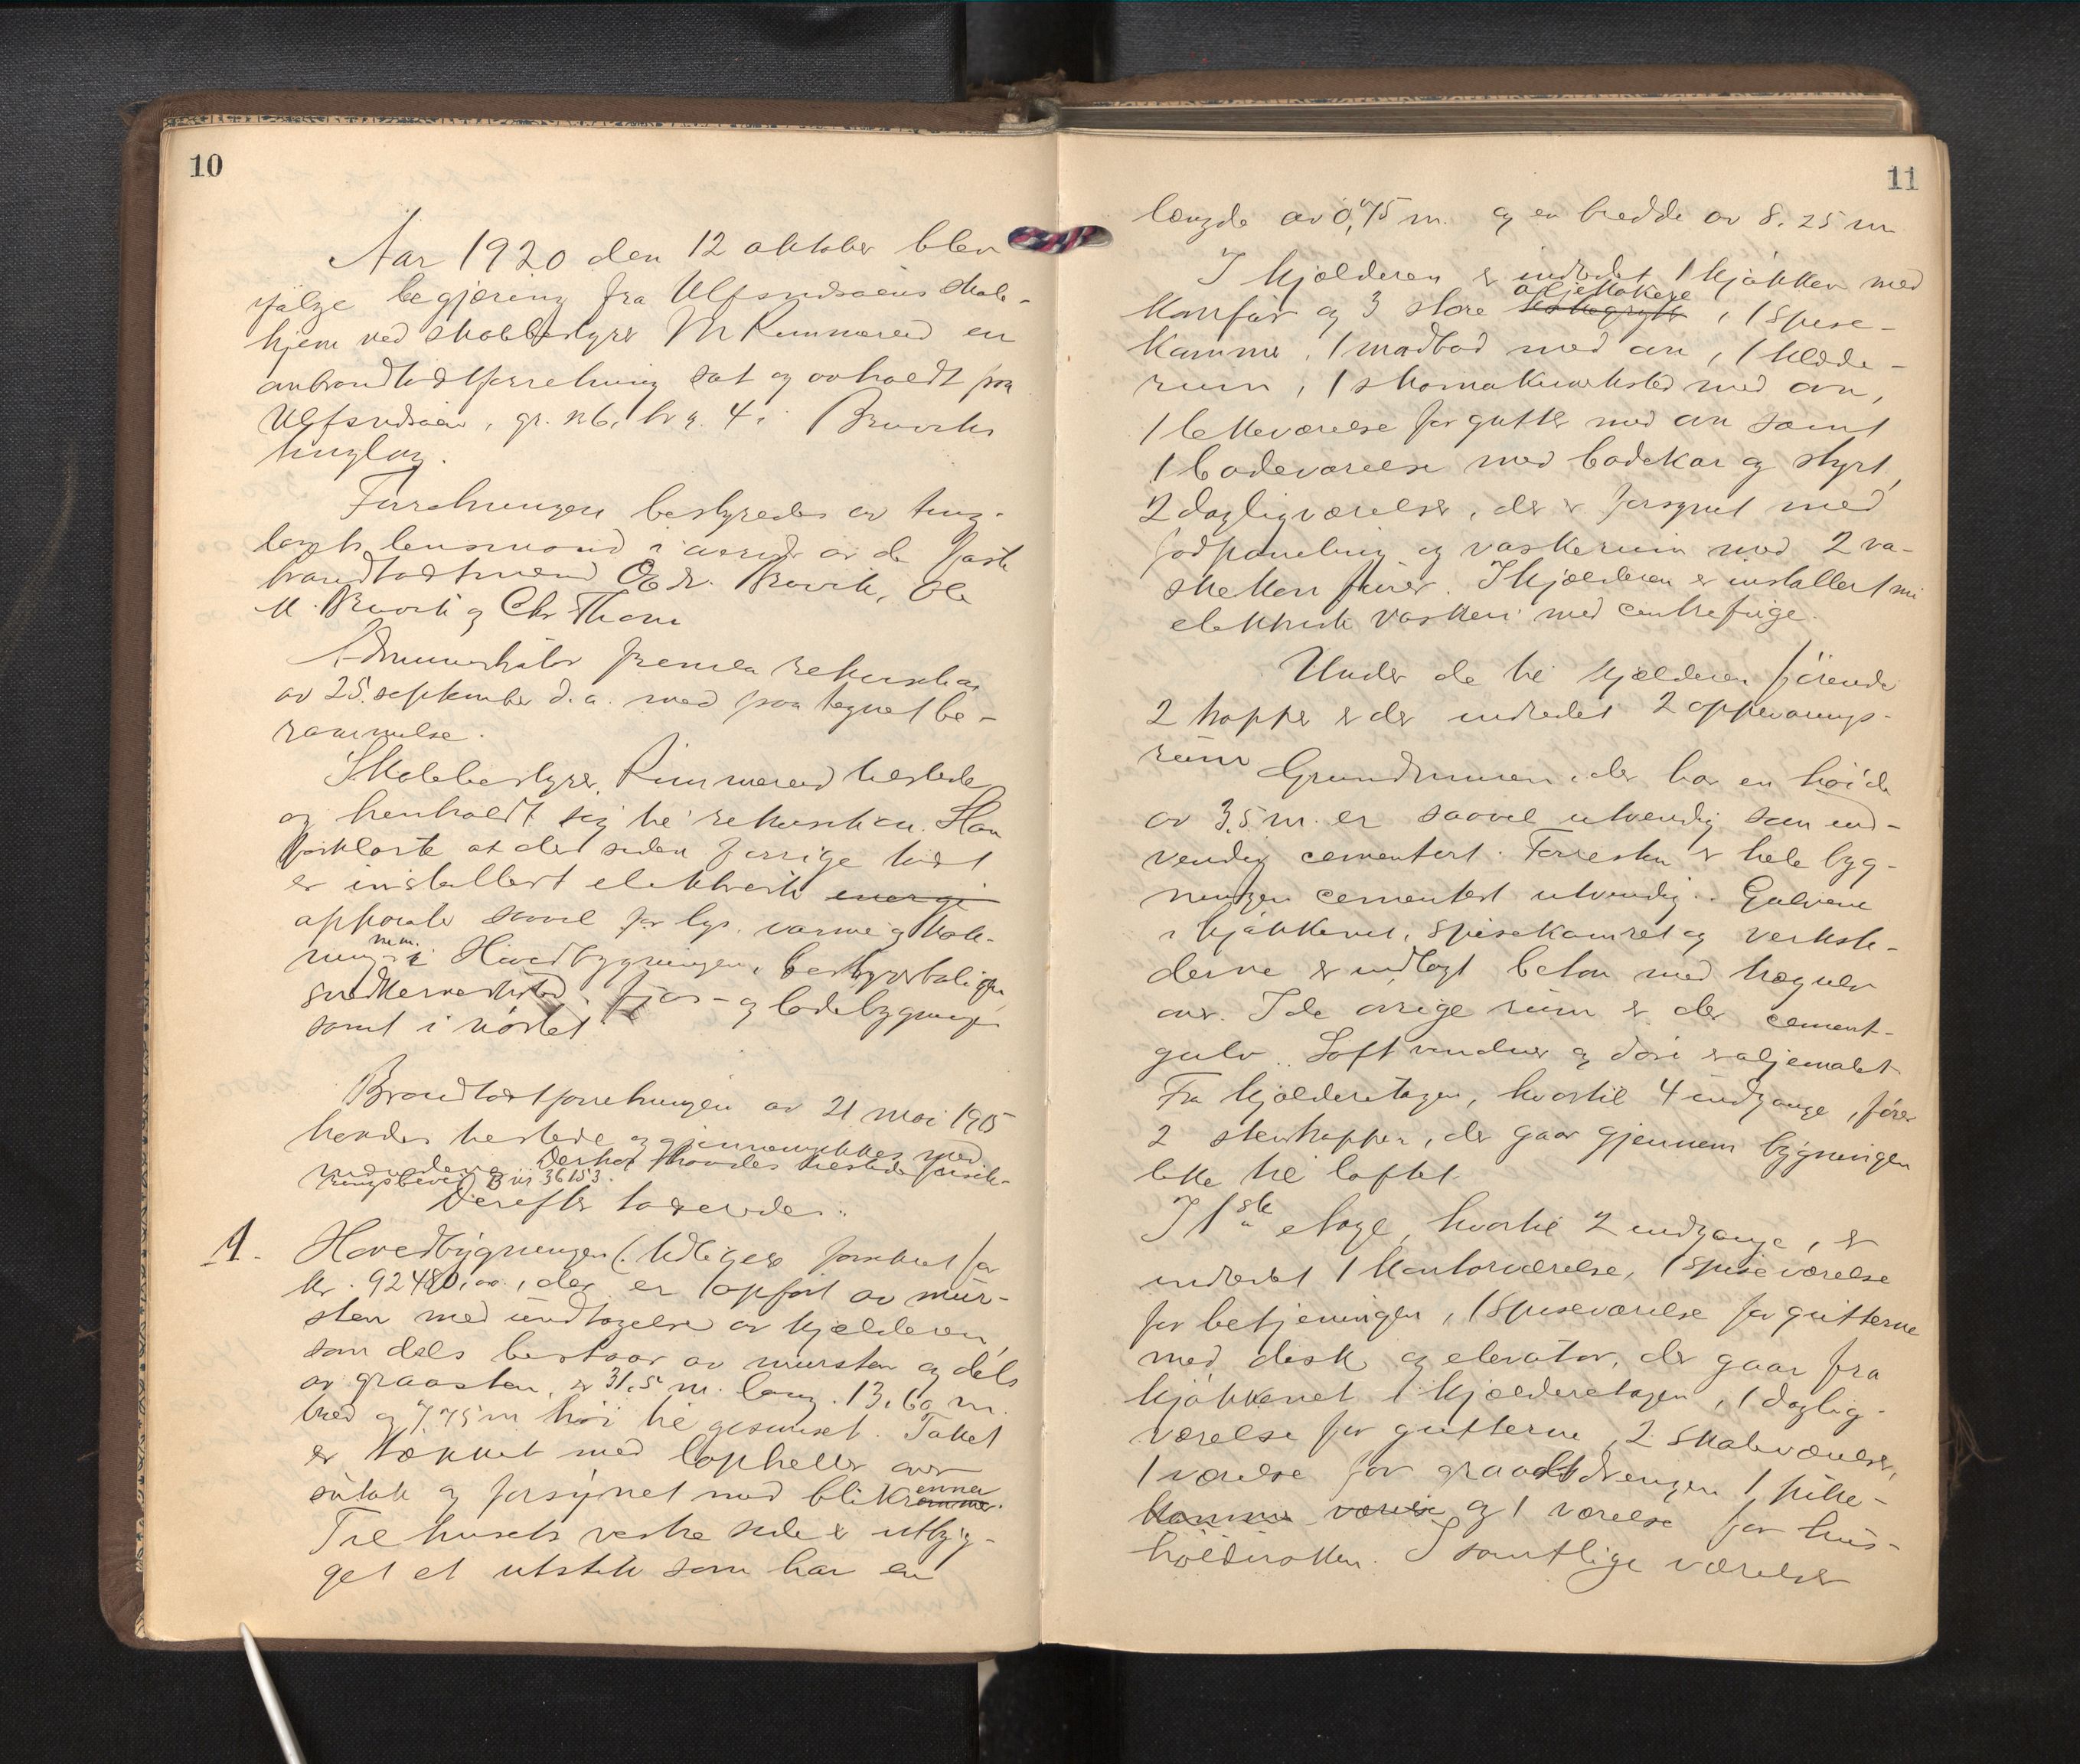 10
Aar 1920 den 12 oktober blev
ifølge begjæring fra Ulfsndsøens skole-
hjem ved skolebestyrer M Rimmereid en
ombrandtakstforretning sat og avholdt paa
Ulfsndsøen, gr. n. 6, br n. 4 i Bruviks
tinglag.
Forretningen bestyredes av ting-
lagets lensmand i overvær av de faste
brandtakstmænd O. Bruvik, Ole
M. Bruvik og Chr Thom
Administrator fremla rekvisition
av 25. september d.a. med paategnet be-
rammelse.
Skolebestyrer Rimmereid tilstede
og henholdt sig til rekvisitionen. Han
forklarte at det siden forrige takst
er installert elektrisk energi
apparater saavel for lys, varme og kok-
ning m.m. i Hovedbygningen, bestyrerboligen,
snedkerverksted, fjøs- og ladebygningen
samt i nøstet.
Brandtakstforretningen av 21 mai 1915
havdes tilstede og gjennemgikkes med
mændene. Derhos havdes tilstede forsik-
ringsbevis B nr 36153.
Derefter taxerdes:
1. Hovedbygningen (tidligere forsikret for
kr. 92480,00, der er opført av mur-
sten med undtagelse av kjælderen,
som dels bestaar av mursten og dels
av graasten, er 31,5 m. lang, 13,60 m.
bred og 7,75 m høi til gesimset. Taket
er tækket med lapheller over
sutak og forsynet med blikrenner
Til husets vestre side er utbyg-
get et utstik som har en
11
længde av 0,75 m. og en bredde av 8.25 m
I kjælderen er indredet 1 kjøkken med
komfür og 3 store oljekokere, 1 spise-
kammer, 1 madbod med ovn, 1 klæde-
rum, 1 skomakerverksted med ovn,
1 lekeværelse for gutter med ovn samt
1 badeværelse med badekar og styrt,
2 dagligværelser, der er forsynet med
fodpaneling og vaskerum med 2 va-
skekomfürer. I kjælderen er installert nu
elektrisk vaskeri med centrefuge.
Under de til kjælderen førende
2 trapper er der indredet 2 oppevarings-
rüm
Grundmuren, der har en høide
av 3,5 m. er saavel utvendig som ind-
vendig cementert. Forresten er hele byg-
ningen cementert utvendig. Gulvene
i kjøkkenet, spisekamret og verkste-
derne er indlagt beton med trægulv
over. I de øvrige rüm er der cement-
gulv. Loft vinduer og døre er oljemalet
Fra kjælderetagen, hvortil 4 indgange, fører
2 stentrapper, der gaar gjennem bygningen
like til loftet.
I 1ste etage, hvortil 2 indgange, er
indredet 1 kontorværelse, 1 spiseværelse
for betjeningen, 1 spiseværelse for gutterne
med disk og elevator, der gaar fra
kjøkkenet i kjælderetagen, 1 daglig-
værelse for gutterne, 2 skoleværelser,
1 værelse for graadsdrengen 1 pike-
kammer værelse og 1 værelse for hüs-
holdersken. I samtlige værelser